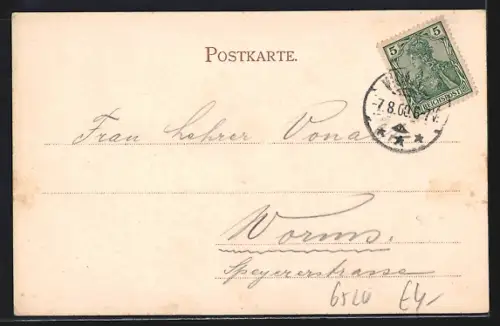 POSTKARTE.
5 5
REICHSPOST
7.8.0
Frau Lehrer Vona
Worms.
Speyererstrasse
6520 £4,-